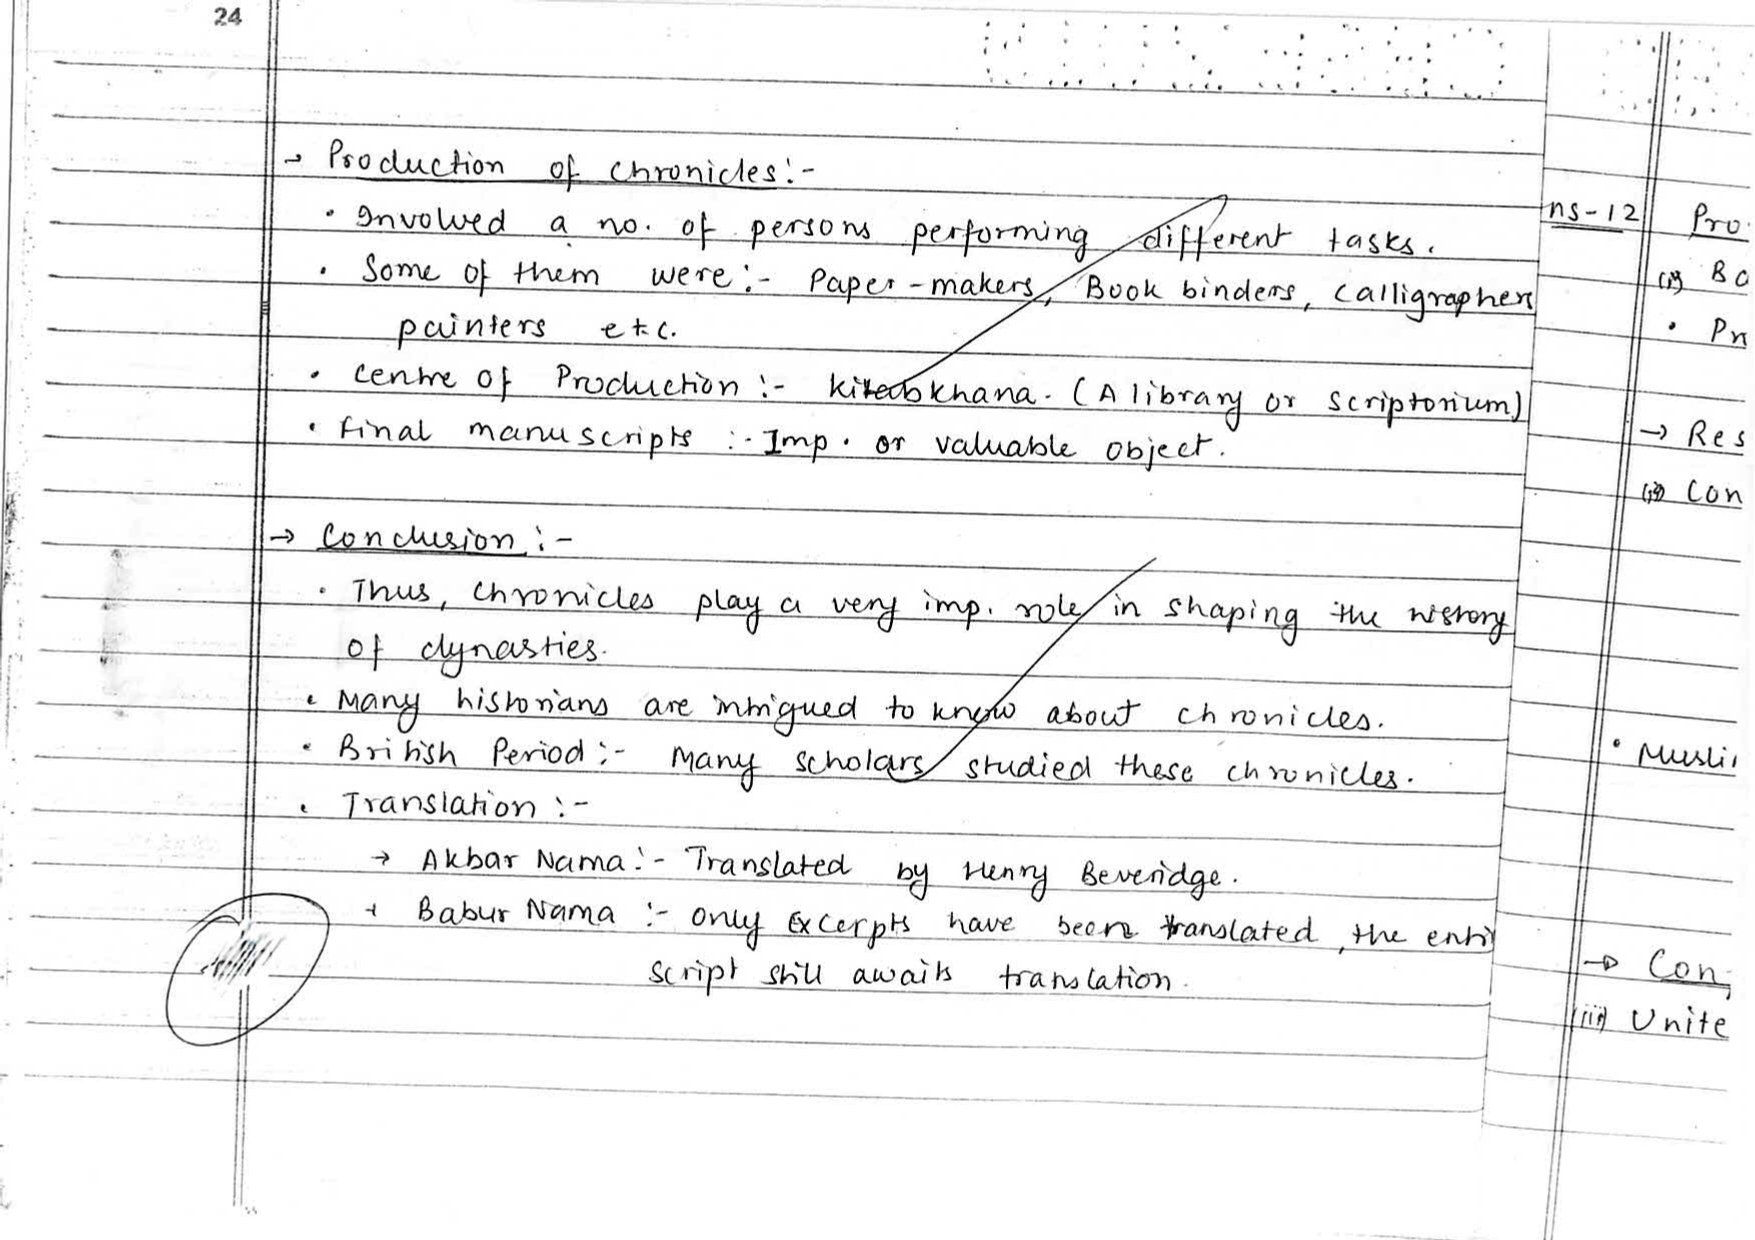 24
→ Production of chronicles:-
• Involved a no. of persons performing different tasks.
• Some of them were:- Paper-makers, Book binders, calligraphers
painters etc.
• Centre of Production :- kitabkhana. (A library or scriptorium)
• Final manuscripts :- Imp. or valuable object.
→ Conclusion :-
• Thus, chronicles play a very imp. role in shaping the history
of dynasties.
• Many historians are intrigued to know about chronicles.
• British Period :- Many scholars studied these chronicles.
• Translation :-
→ Akbar Nama :- Translated by Henry Beveridge.
→ Babur Nama :- only Excerpts have been translated, the enti
script still awaits translation.
ns-12 Pro
(i) Ba
• Pr
→ Res
(ii) Con
• Musli
→ Con
(iii) Unite